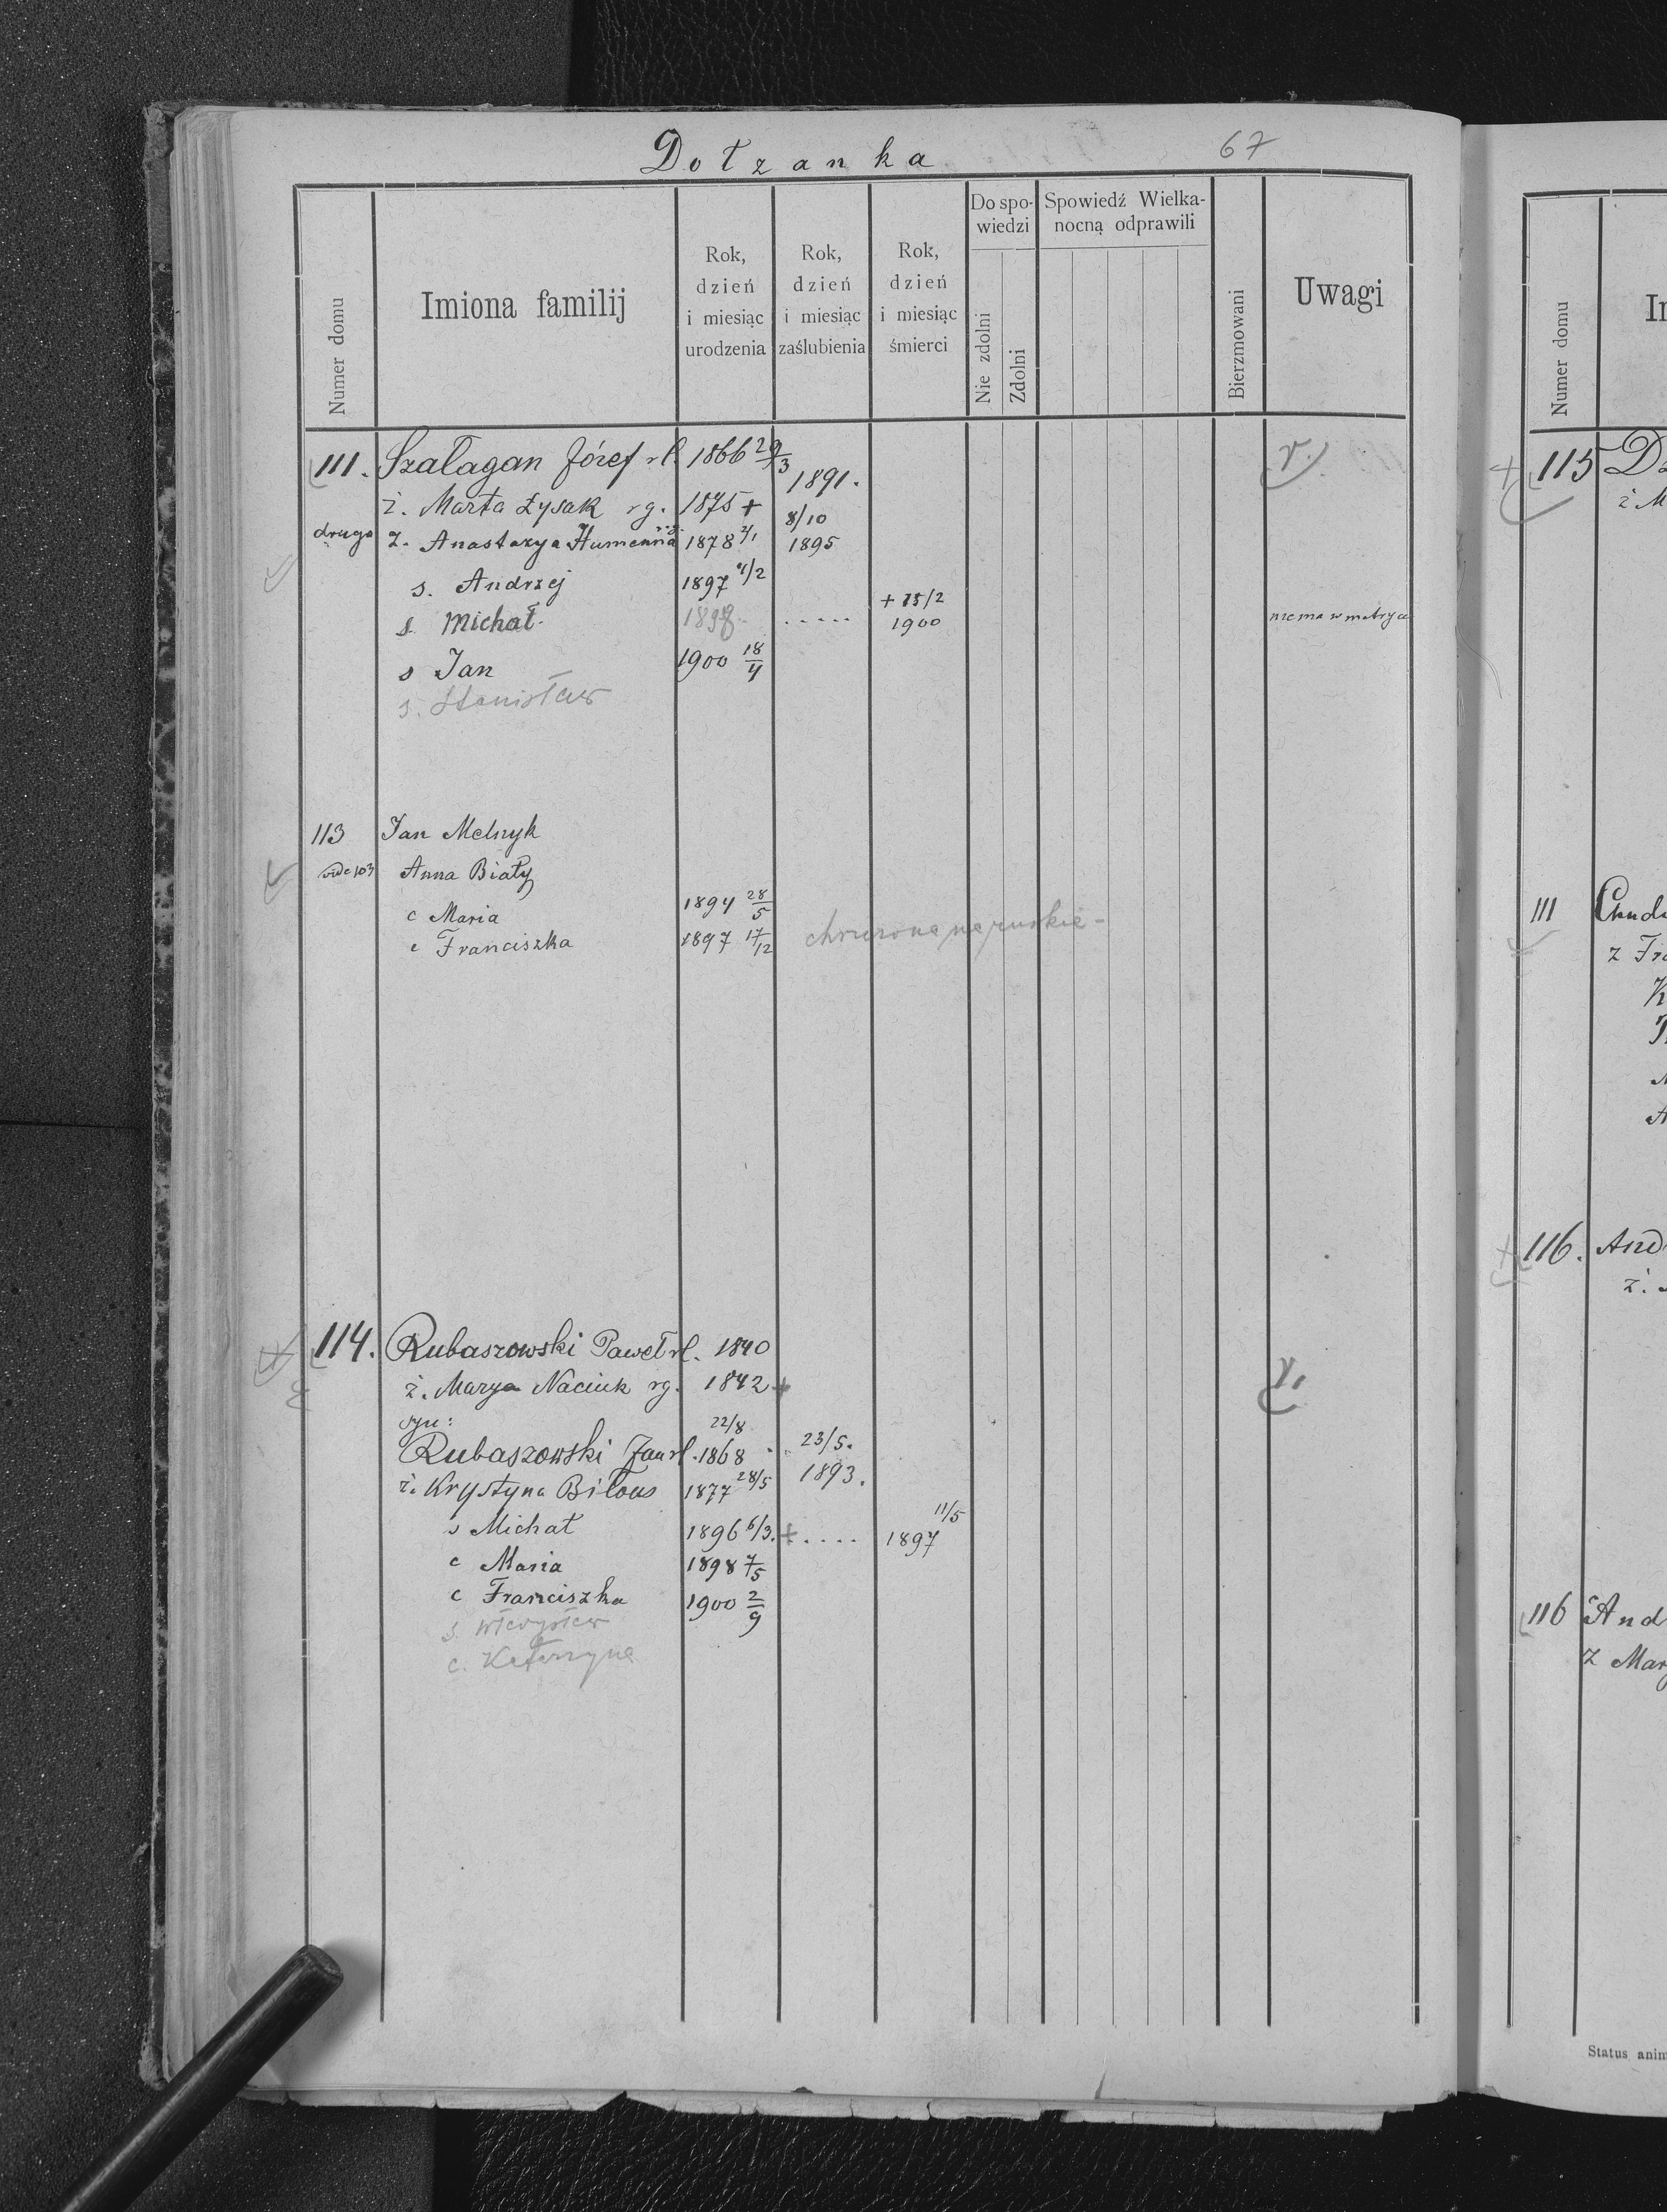 Dołzanka
67
Numer domu
Imiona familij
Rok, dzień i miesiąc urodzenia
Rok, dzień i miesiąc zaślubienia
Rok, dzień i miesiąc śmierci
Do spowiedzi
Nie zdolni
Zdolni
Spowiedź Wielkanocną odprawili
Bierzmowani
Uwagi
111. Szałagan Józef rl. 1866 29/3 1891. r.
ż. Marta Łysak rg. 1875 +
druga ż. Anastazya Humenna rg. 1878 2/1 8/10 1895
s. Andrzej 1897 4/2
s Michał. 1898. ..... + 15/2 1900 niema w metryce
s Jan 1900 18/4
s. Stanisław
113 Jan Melnyk
vide 103 Anna Biały
c Maria 1894 28/5
c Franciszka 1897 17/12 chrzczone na ruskie -
114. Rubaszowski Paweł rl. 1840
ż. Marya Naciuk rg. 1842 + r.
syn:
Rubaszowski Jan rl. 22/8 1868 23/5. 1893.
ż. Krystyna Biłous 1877 28/5
s Michał 1896 6/3. + .... 11/5 1897
c Maria 1898 7/5
c Franciszka 1900 2/9
s. Władysław
c. Katarzyna
Numer domu
115
ż M
111
z Fra
116. And
ż.
116 And
z Mary
Status anim